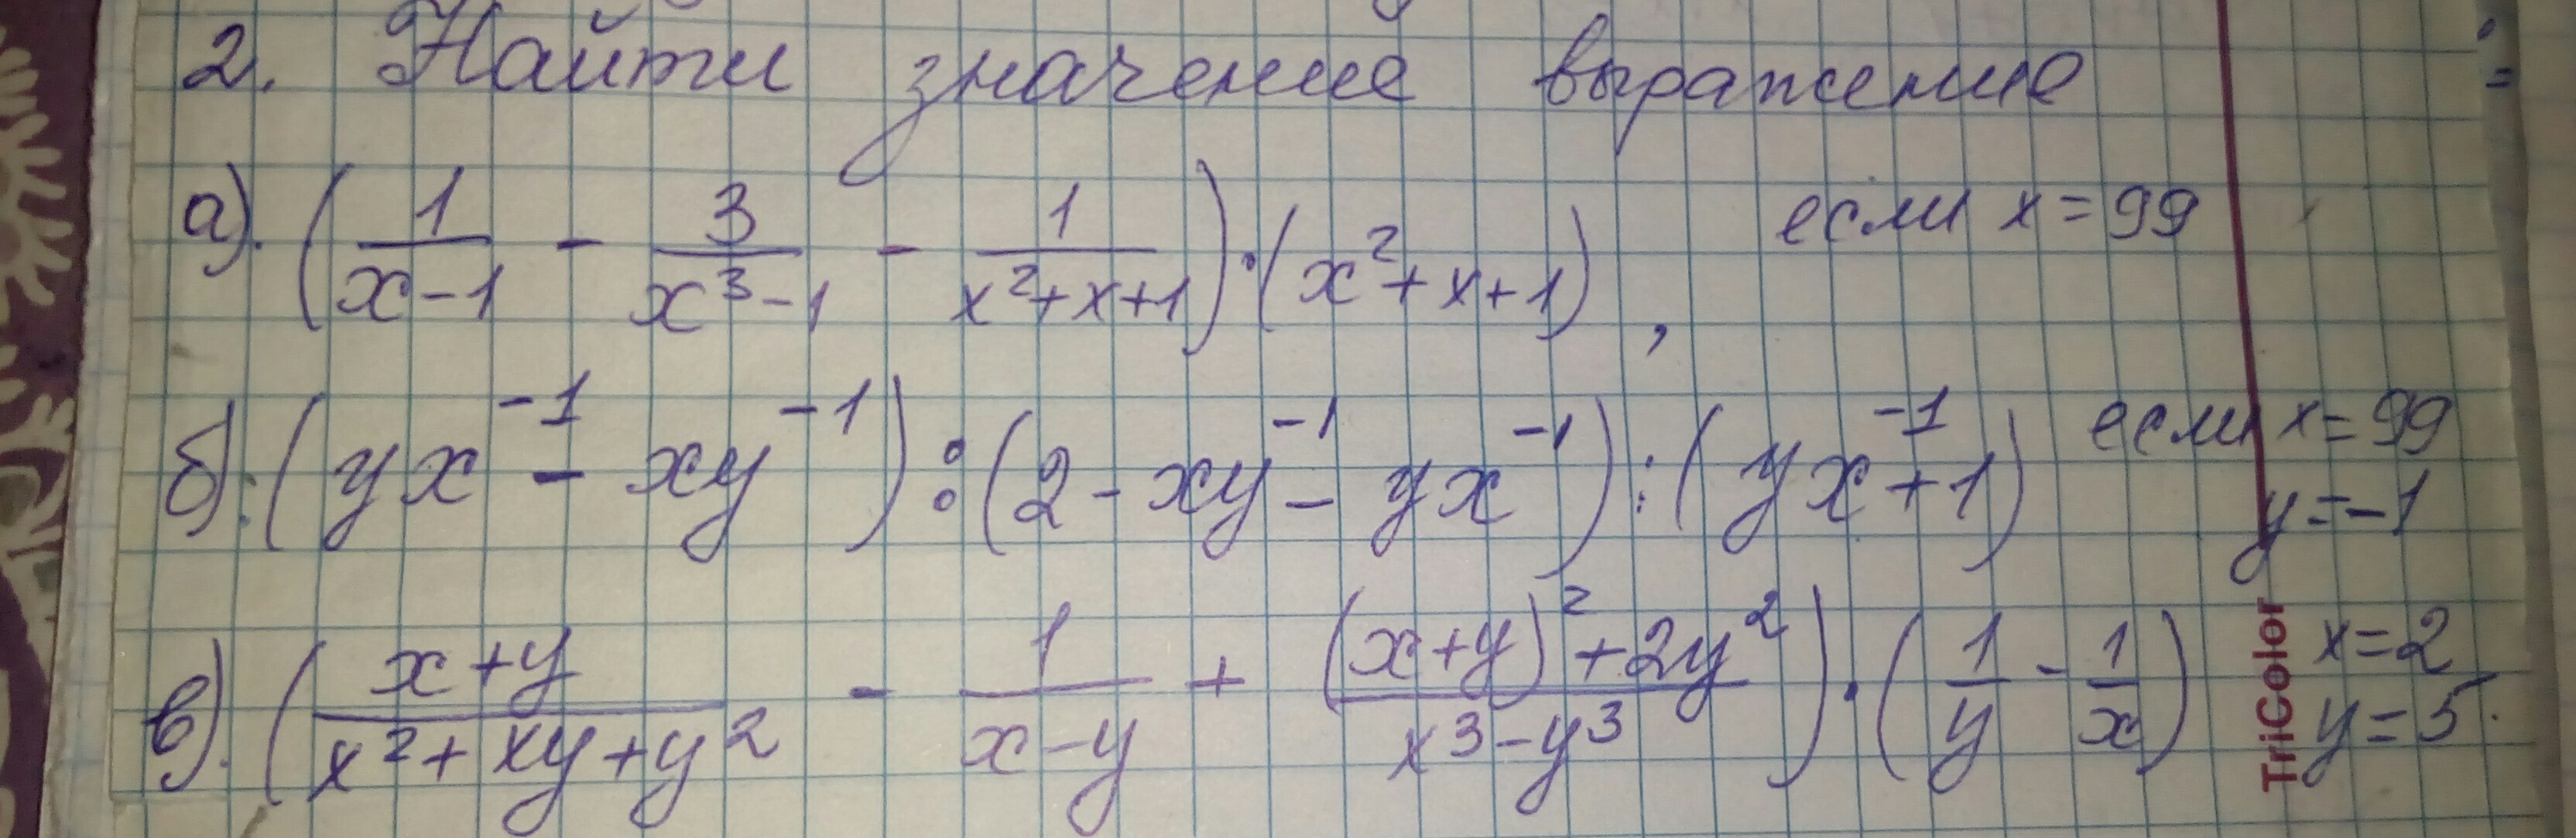 2. Найти значение выражение
а). (1/(x-1) - 3/(x³-1) - 1/(x²+x+1)) · (x²+x+1), если x=99
б): (yx⁻¹ - xy⁻¹) : (2 - xy⁻¹ - yx⁻¹) : (yx⁻¹+1) если x=99
y=-1
в). ((x+y)/(x²+xy+y²) - 1/(x-y) + ((x+y)²+2y²)/(x³-y³)) · (1/y - 1/x) x=2
y=5.
TriColor